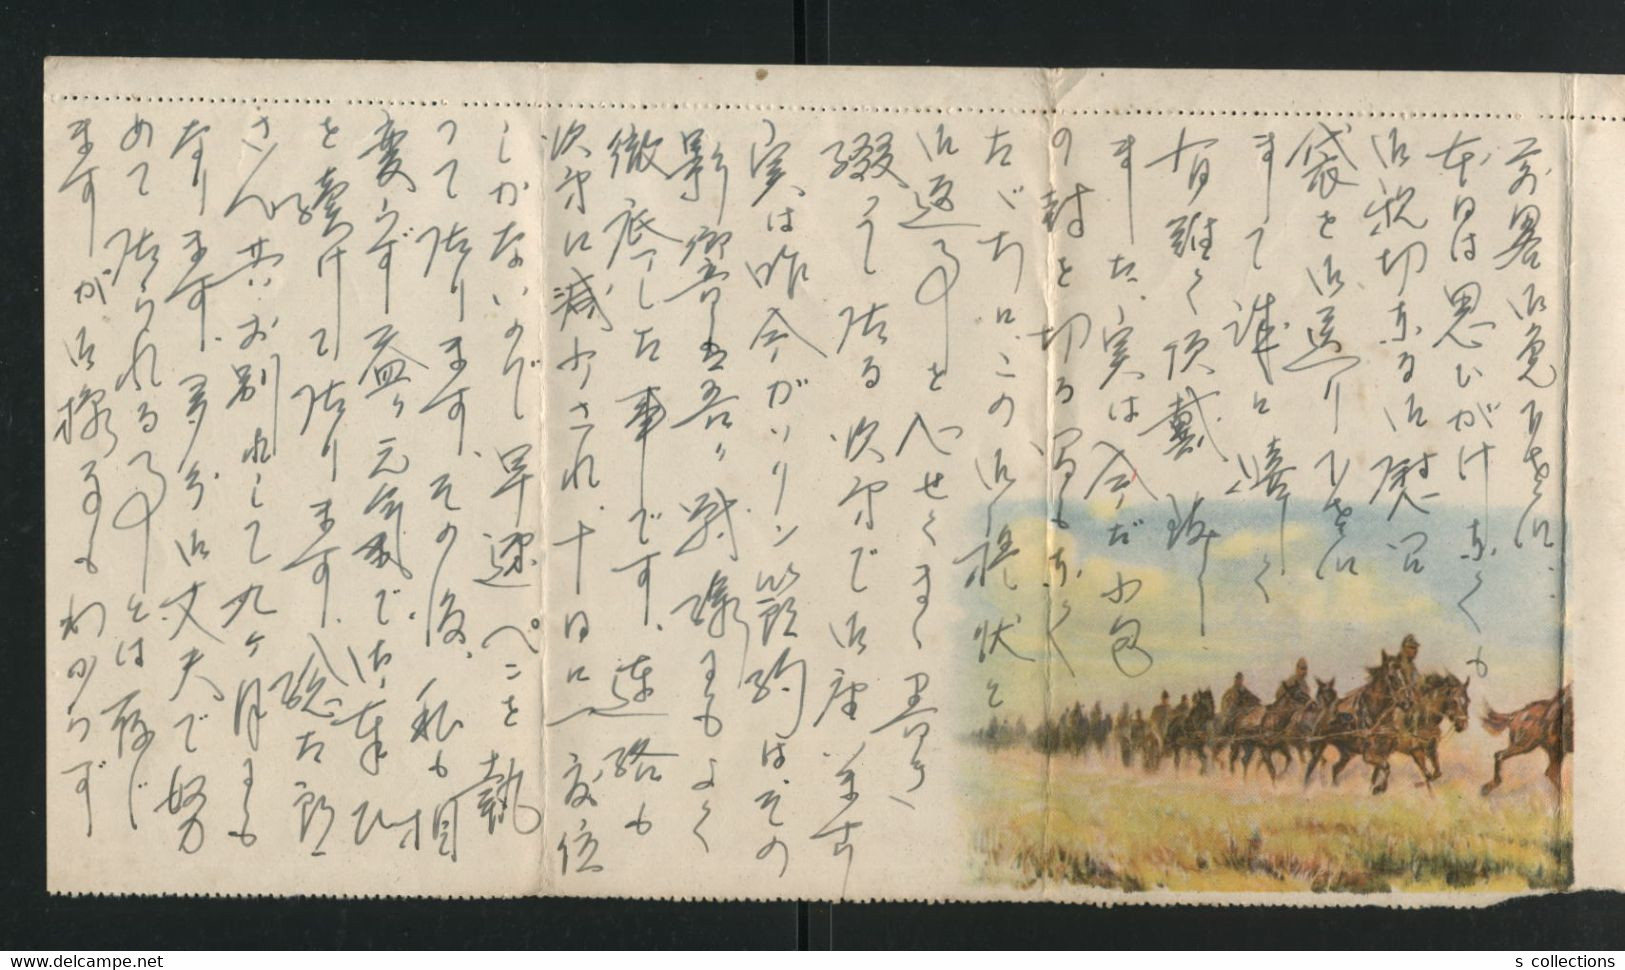 前略御免下さい、
本日は思ひがけなくも
御祝切なる御慰問
袋を御送り下さい
まして誠に嬉しく
有難く頂戴致し
ました、実は今だ小包
の封を切る間もなく
たゞちにこの御礼状と
御返事とを心せくまゝ書き
綴って居る次第で御座います
実は昨今がソリン節約はその
影響を吾々戦線にもよく
徹底した事です、連絡も
次第に減少され、十日に一度位
しかないので早速ペンを執
って居ります、その後、私も相
変らず益々元気で御奉公
を続けて居ります、総太郎
さん共お別れして九ヶ月にも
なります、多分御丈夫で努
めて居られる事とは存じ
ますが御様子もわからず
s collections